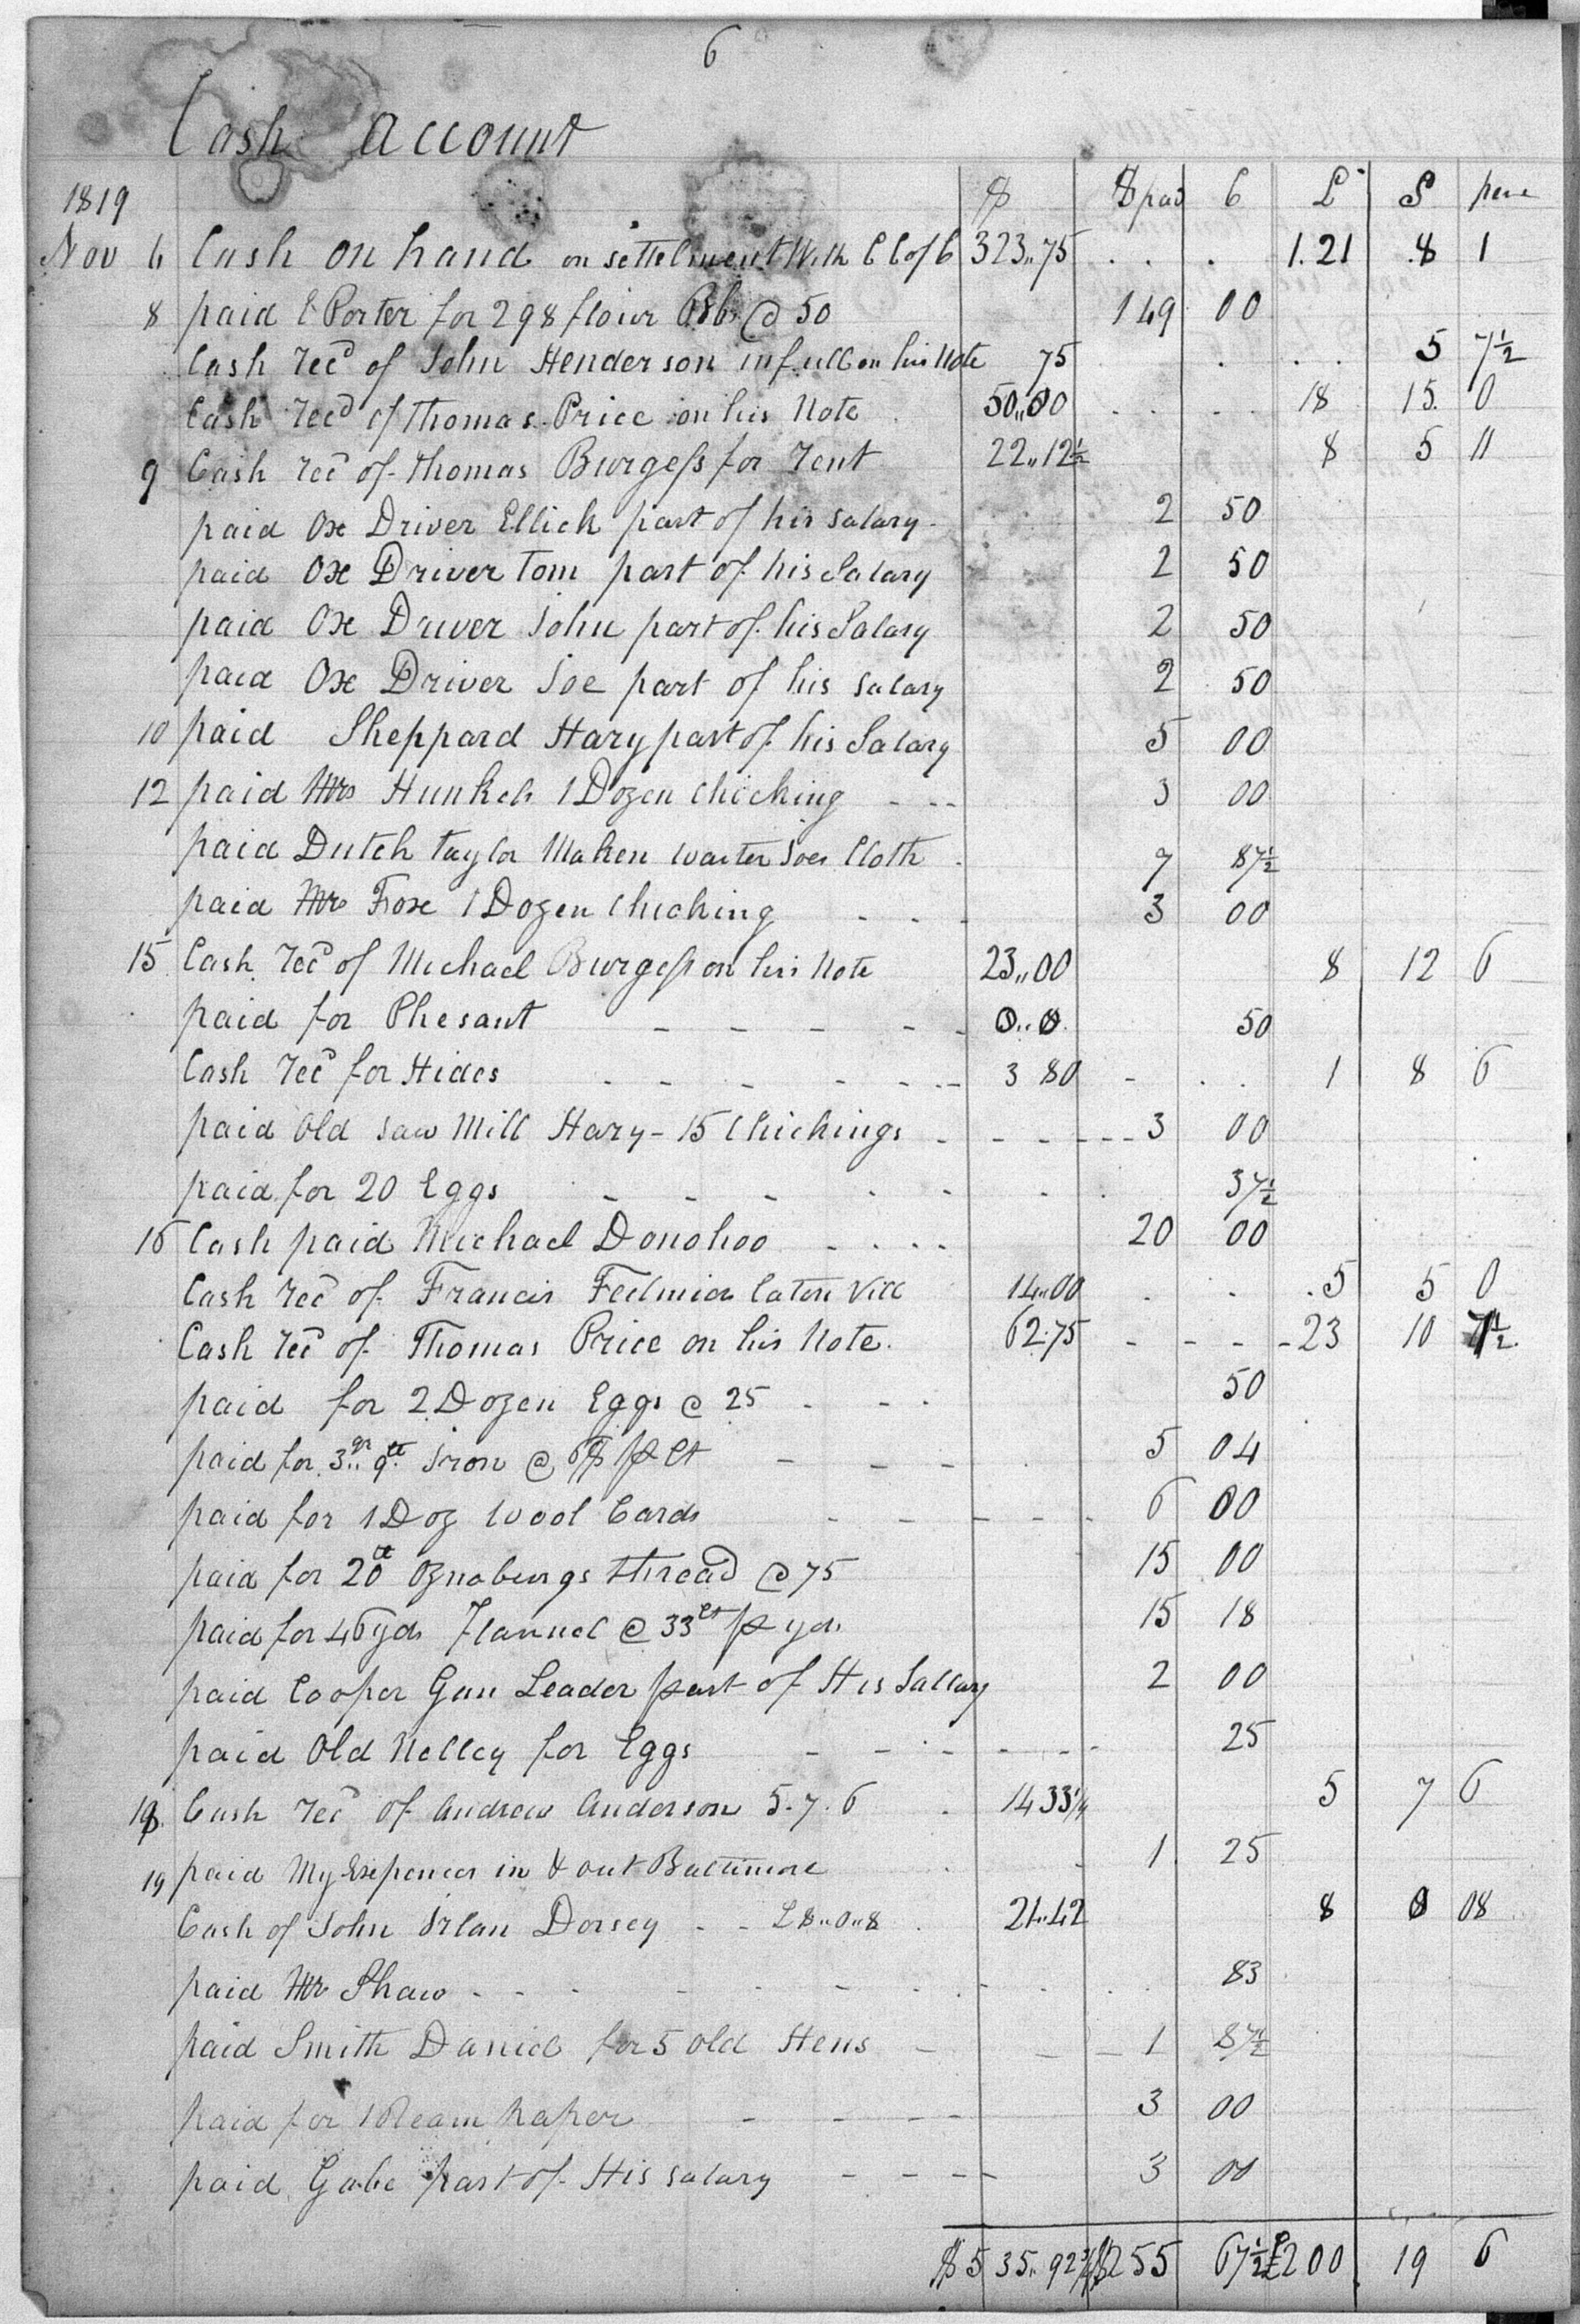 6
Cash account
1819 $ $ paid C £ S pene
Nov 6 Cash on hand on settelment With C C of C 323,,75 . . . 1.21 .8 1
8 paid E Porter for 298 flour Bbs @ 50 149 00
Cash Recd of John Henderson in full on his Note 75 . . . 5 7½
Cash Recd of Thomas Price on his Note 50,,00 . . . . 18 15. 0
9 Cash Recd of Thomas Burgess for Rent 22,,12½ 8 5 11
paid Ox Driver Ellick part of his salary 2 50
paid Ox Driver Tom part of his Salary 2 50
paid Ox Driver John part of his Salary 2 50
paid Ox Driver Joe part of his salary 2 50
10 paid Sheppard Hary part of his Salary 5 00
12 paid Mrs 1 Dozen Chicking - - - 3 00
paid Dutch taylor Maken waiter Joes Cloth 7 87½
paid Mr Fox 1 Dozen Chicking - - - 3 00
15 Cash Recd of Michael Burgess on his Note 23,,00 8 12 6
paid for Phesant - - - - - 0,,0 50
Cash Recd for Hides - - - - - - - 3 80 - . . 1 8 6
paid Old Saw Mill Hary - 15 Chickings - - - - - - 3 00
paid for 20 Eggs - - - - - - . 37½
16 Cash paid Michael Donohoo - - - - 20 00
Cash Recd of Francis 14,,00 . . .5 5 0
Cash Recd of Thomas Price on his Note. 62.75 - - - - 23 10 7½
paid for 2 Dozen Eggs @ 25 - - - 50
paid for 3qr,, 9lt Iron @ 6$ p Ct - - - 5 04
paid for 1 Doz Wool Cards - - - - - 6 00
paid for 20lt Oznaburgs thread @ 75 15 00
paid for 46 yds Flannel @ 33ct p yds 15 18
paid Cooper Gun Leader part of His Sallary 2 00
paid Old Nelley for Eggs - - - - - - 25
18 Cash Recd of Andrew Anderson 5.7.6 . 14 33¼ 5 7 6
19 paid My Expences in & out Baltimore 1. 25
Cash of John Irlan Dorsey - - £8,,0,,8 21,,42 8 0 08
paid Mr Shaw - - - - - - - 83
paid Smith Daniel for 5 old Hens - - - 1 87½
paid for 1 Ream paper - - - - 3 00
paid Gabe part of His salary - - - - 3 00
$535,,92¾ $255 67½ £200 19 6